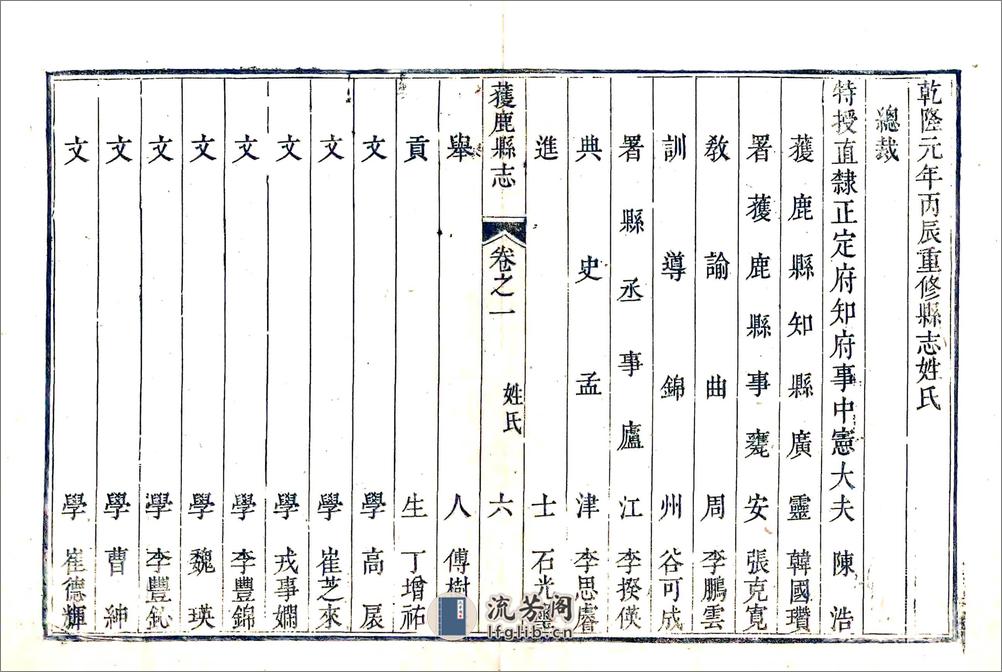 乾隆元年丙辰重修縣志姓氏
總裁
特授直隸正定府知府事中憲大夫陳浩
獲鹿縣知縣廣靈韓國瓚
署獲鹿縣事甕安張克寬
教諭曲周李鵬雲
訓導錦州谷可成
署縣丞事廬江李揆僙
典史孟津李思睿
進士石光
獲鹿縣志 卷之一 姓氏 六
舉人傅樹
貢生丁增祐
文學高
文學崔芝來
文學戎事嫺
文學李豐錦
文學魏瑛
文學李豐釚
文學曹紳
文學崔德輝
流芳阁
lfglib.cn